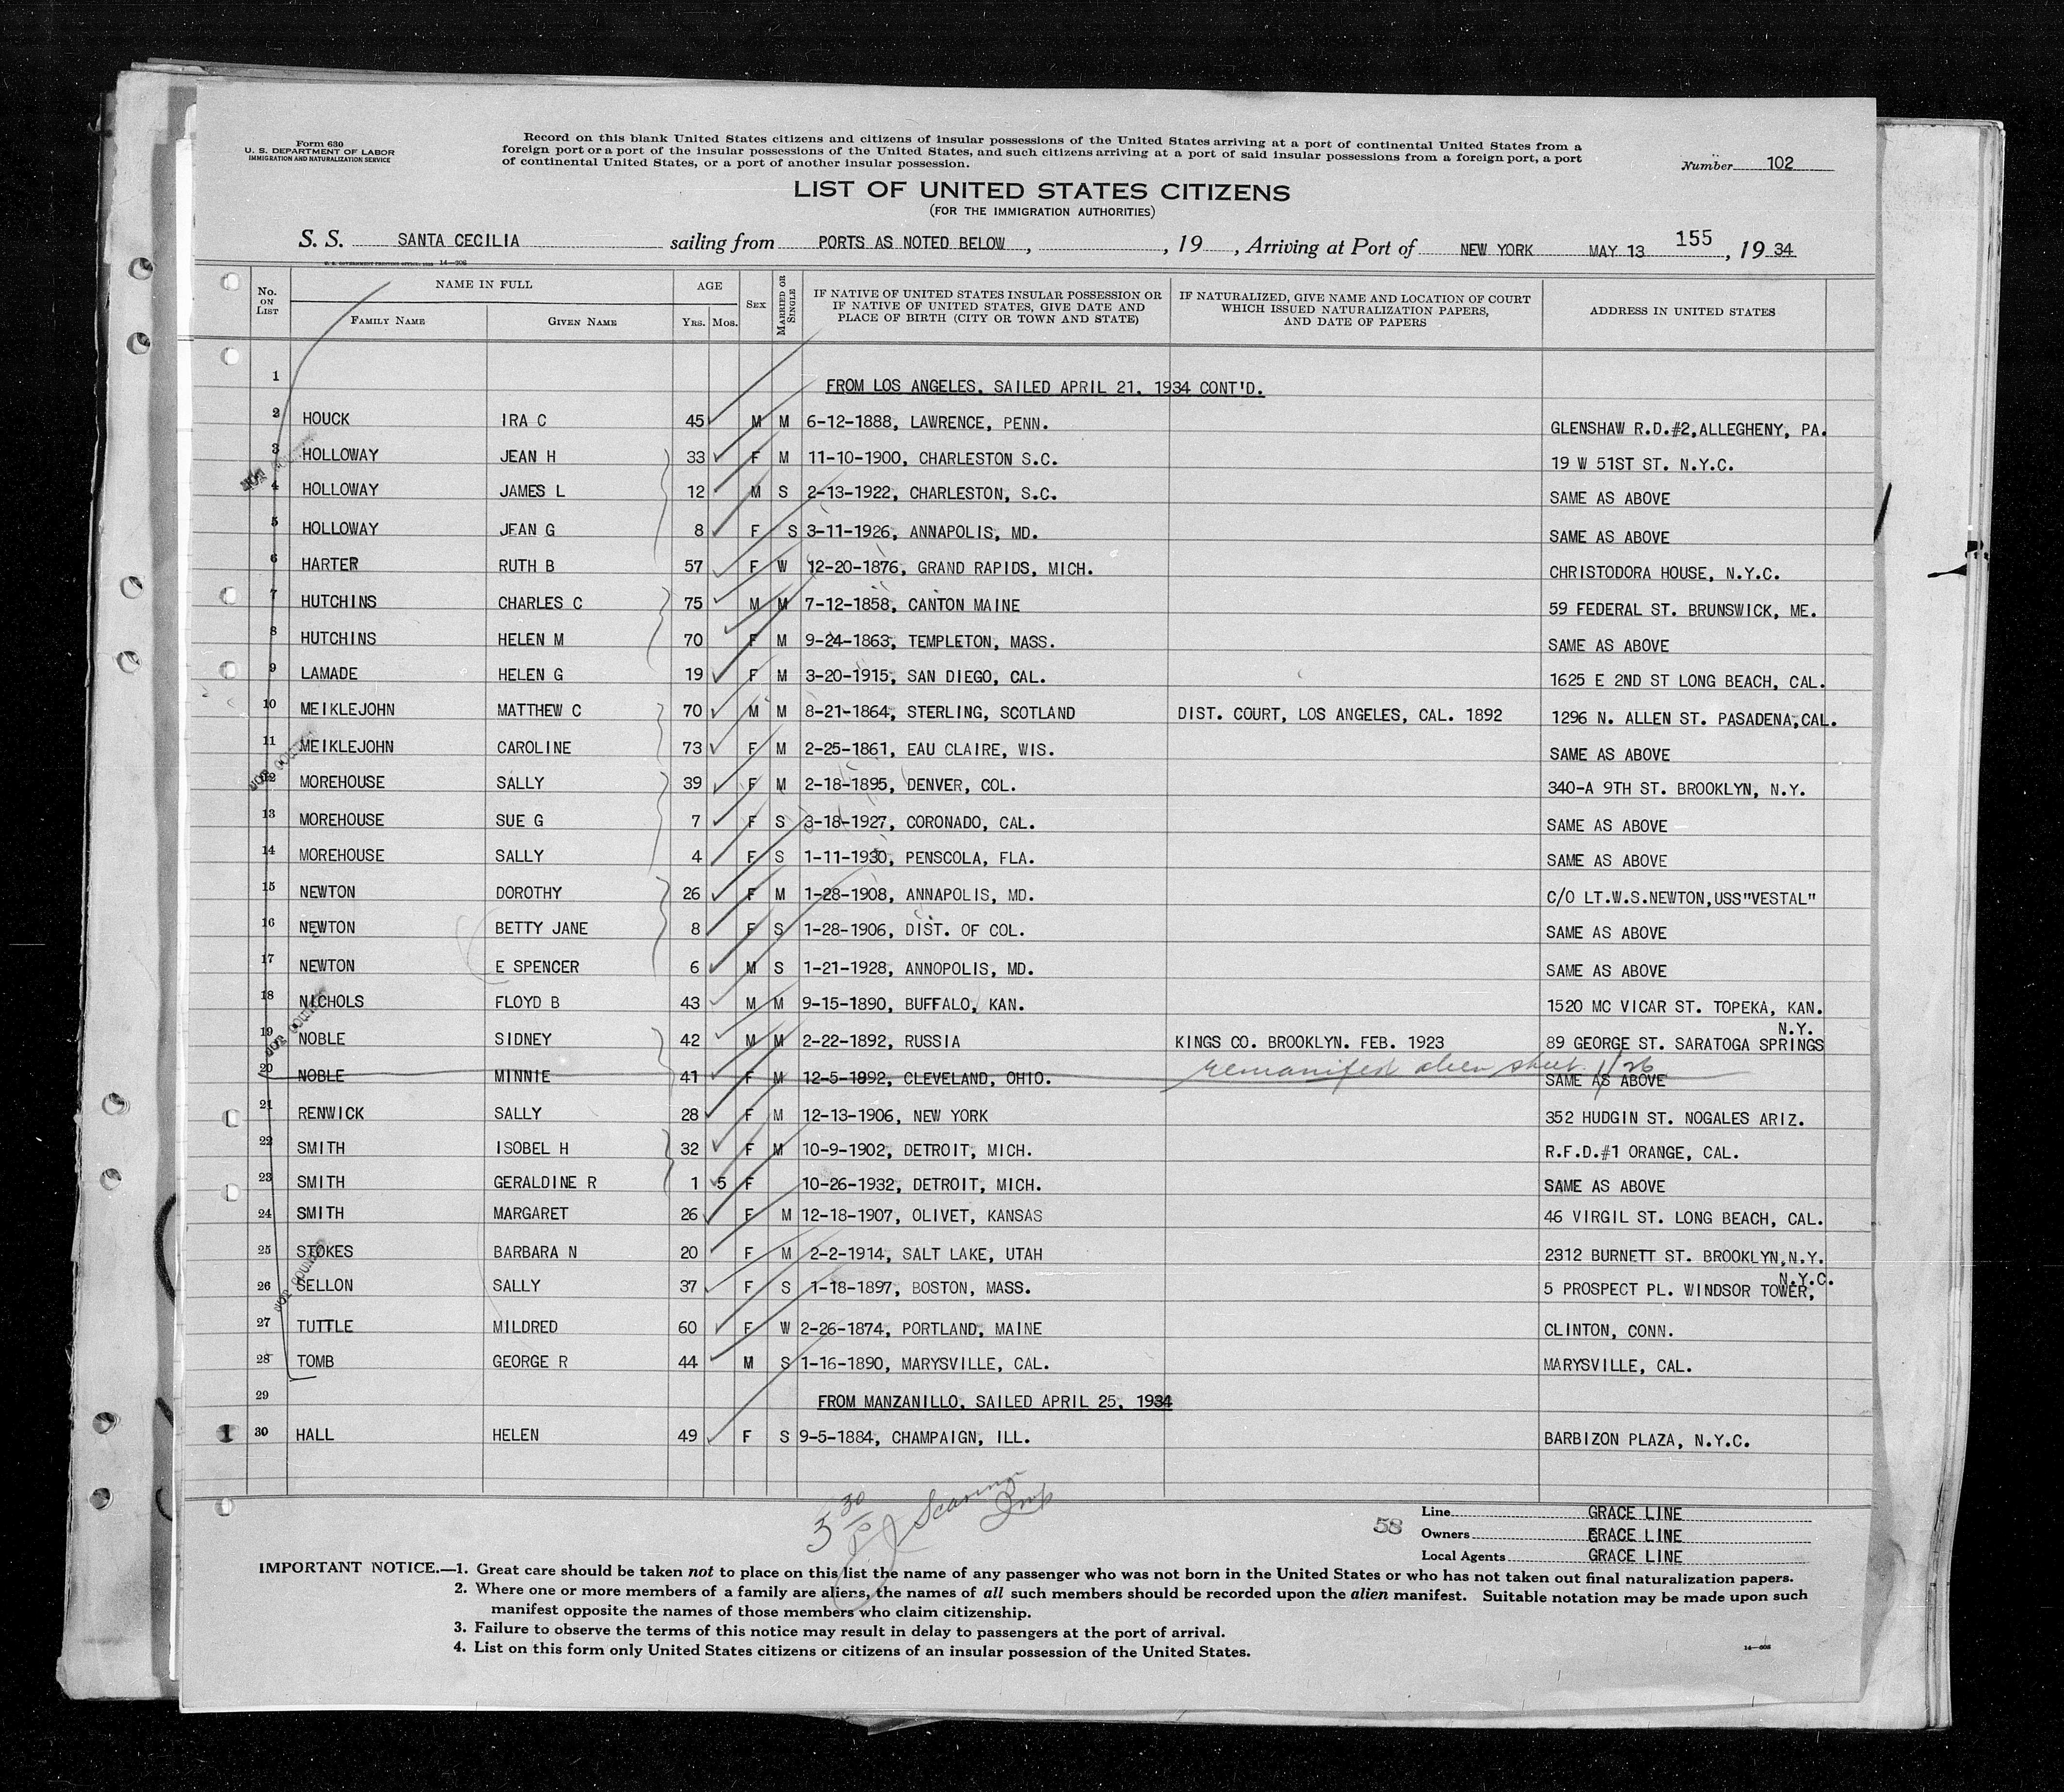 Form 630
U. S. DEPARTMENT OF LABOR
IMMIGRATION AND NATURALIZATION SERVICE
Record on this blank United States citizens and citizens of insular possessions of the United States arriving at a port of continental United States from a
foreign port or a port of the insular possessions of the United States, and such citizens arriving at a port of said insular possessions from a foreign port, a port
of continental United States, or a port of another insular possession.
Number 102
LIST OF UNITED STATES CITIZENS
(FOR THE IMMIGRATION AUTHORITIES)
155
S. S. SANTA CECILIA sailing from PORTS AS NOTED BELOW , , 19 , Arriving at Port of NEW YORK MAY 13 , 19 34
No. ON LIST
NAME IN FULL
FAMILY NAME GIVEN NAME
AGE
YRS. MOS.
SEX
MARRIED OR SINGLE
IF NATIVE OF UNITED STATES INSULAR POSSESSION OR
IF NATIVE OF UNITED STATES, GIVE DATE AND
PLACE OF BIRTH (CITY OR TOWN AND STATE)
IF NATURALIZED, GIVE NAME AND LOCATION OF COURT
WHICH ISSUED NATURALIZATION PAPERS,
AND DATE OF PAPERS
ADDRESS IN UNITED STATES
1 FROM LOS ANGELES. SAILED APRIL 21. 1934 CONT'D.
2 HOUCK IRA C 45 M M 6-12-1888, LAWRENCE, PENN. GLENSHAW R.D.#2,ALLEGHENY, PA.
3 HOLLOWAY JEAN H 33 F M 11-10-1900, CHARLESTON S.C. 19 W 51ST ST. N.Y.C.
4 HOLLOWAY JAMES L 12 M S 2-13-1922, CHARLESTON, S.C. SAME AS ABOVE
5 HOLLOWAY JEAN G 8 F S 3-11-1926, ANNAPOLIS, MD. SAME AS ABOVE
6 HARTER RUTH B 57 F W 12-20-1876, GRAND RAPIDS, MICH. CHRISTODORA HOUSE, N.Y.C.
7 HUTCHINS CHARLES C 75 M M 7-12-1858, CANTON MAINE 59 FEDERAL ST. BRUNSWICK, ME.
8 HUTCHINS HELEN M 70 F M 9-24-1863, TEMPLETON, MASS. SAME AS ABOVE
9 LAMADE HELEN G 19 F M 3-20-1915, SAN DIEGO, CAL. 1625 E 2ND ST LONG BEACH, CAL.
10 MEIKLEJOHN MATTHEW C 70 M M 8-21-1864, STERLING, SCOTLAND DIST. COURT, LOS ANGELES, CAL. 1892 1296 N. ALLEN ST. PASADENA,CAL.
11 MEIKLEJOHN CAROLINE 73 F M 2-25-1861, EAU CLAIRE, WIS. SAME AS ABOVE
12 MOREHOUSE SALLY 39 F M 2-18-1895, DENVER, COL. 340-A 9TH ST. BROOKLYN, N.Y.
13 MOREHOUSE SUE G 7 F S 3-18-1927, CORONADO, CAL. SAME AS ABOVE
14 MOREHOUSE SALLY 4 F S 1-11-1930, PENSCOLA, FLA. SAME AS ABOVE
15 NEWTON DOROTHY 26 F M 1-28-1908, ANNAPOLIS, MD. C/O LT.W.S.NEWTON,USS"VESTAL"
16 NEWTON BETTY JANE 8 F S 1-28-1906, DIST. OF COL. SAME AS ABOVE
17 NEWTON E SPENCER 6 M S 1-21-1928, ANNOPOLIS, MD. SAME AS ABOVE
18 NICHOLS FLOYD B 43 M M 9-15-1890, BUFFALO, KAN. 1520 MC VICAR ST. TOPEKA, KAN.
N.Y.
19 NOBLE SIDNEY 42 M M 2-22-1892, RUSSIA KINGS CO. BROOKLYN. FEB. 1923 89 GEORGE ST. SARATOGA SPRINGS
20 NOBLE MINNIE 41 F M 12-5-1892, CLEVELAND, OHIO. remanifest alien sheet 1/26 SAME AS ABOVE
21 RENWICK SALLY 28 F M 12-13-1906, NEW YORK 352 HUDGIN ST. NOGALES ARIZ.
22 SMITH ISOBEL H 32 F M 10-9-1902, DETROIT, MICH. R.F.D.#1 ORANGE, CAL.
23 SMITH GERALDINE R 1 5 F 10-26-1932, DETROIT, MICH. SAME AS ABOVE
24 SMITH MARGARET 26 F M 12-18-1907, OLIVET, KANSAS 46 VIRGIL ST. LONG BEACH, CAL.
25 STOKES BARBARA N 20 F M 2-2-1914, SALT LAKE, UTAH 2312 BURNETT ST. BROOKLYN,N.Y.
N.Y.C.
26 SELLON SALLY 37 F S 1-18-1897, BOSTON, MASS. 5 PROSPECT PL. WINDSOR TOWER,
27 TUTTLE MILDRED 60 F W 2-26-1874, PORTLAND, MAINE CLINTON, CONN.
28 TOMB GEORGE R 44 M S 1-16-1890, MARYSVILLE, CAL. MARYSVILLE, CAL.
29 FROM MANZANILLO. SAILED APRIL 25, 1934
30 HALL HELEN 49 F S 9-5-1884, CHAMPAIGN, ILL. BARBIZON PLAZA, N.Y.C.
NOT COUNTED
NOT COUNTED
NOT COUNTED
5 30
58
Line GRACE LINE
Owners GRACE LINE
Local Agents GRACE LINE
IMPORTANT NOTICE.—1. Great care should be taken not to place on this list the name of any passenger who was not born in the United States or who has not taken out final naturalization papers.
2. Where one or more members of a family are aliens, the names of all such members should be recorded upon the alien manifest. Suitable notation may be made upon such
manifest opposite the names of those members who claim citizenship.
3. Failure to observe the terms of this notice may result in delay to passengers at the port of arrival.
4. List on this form only United States citizens or citizens of an insular possession of the United States.